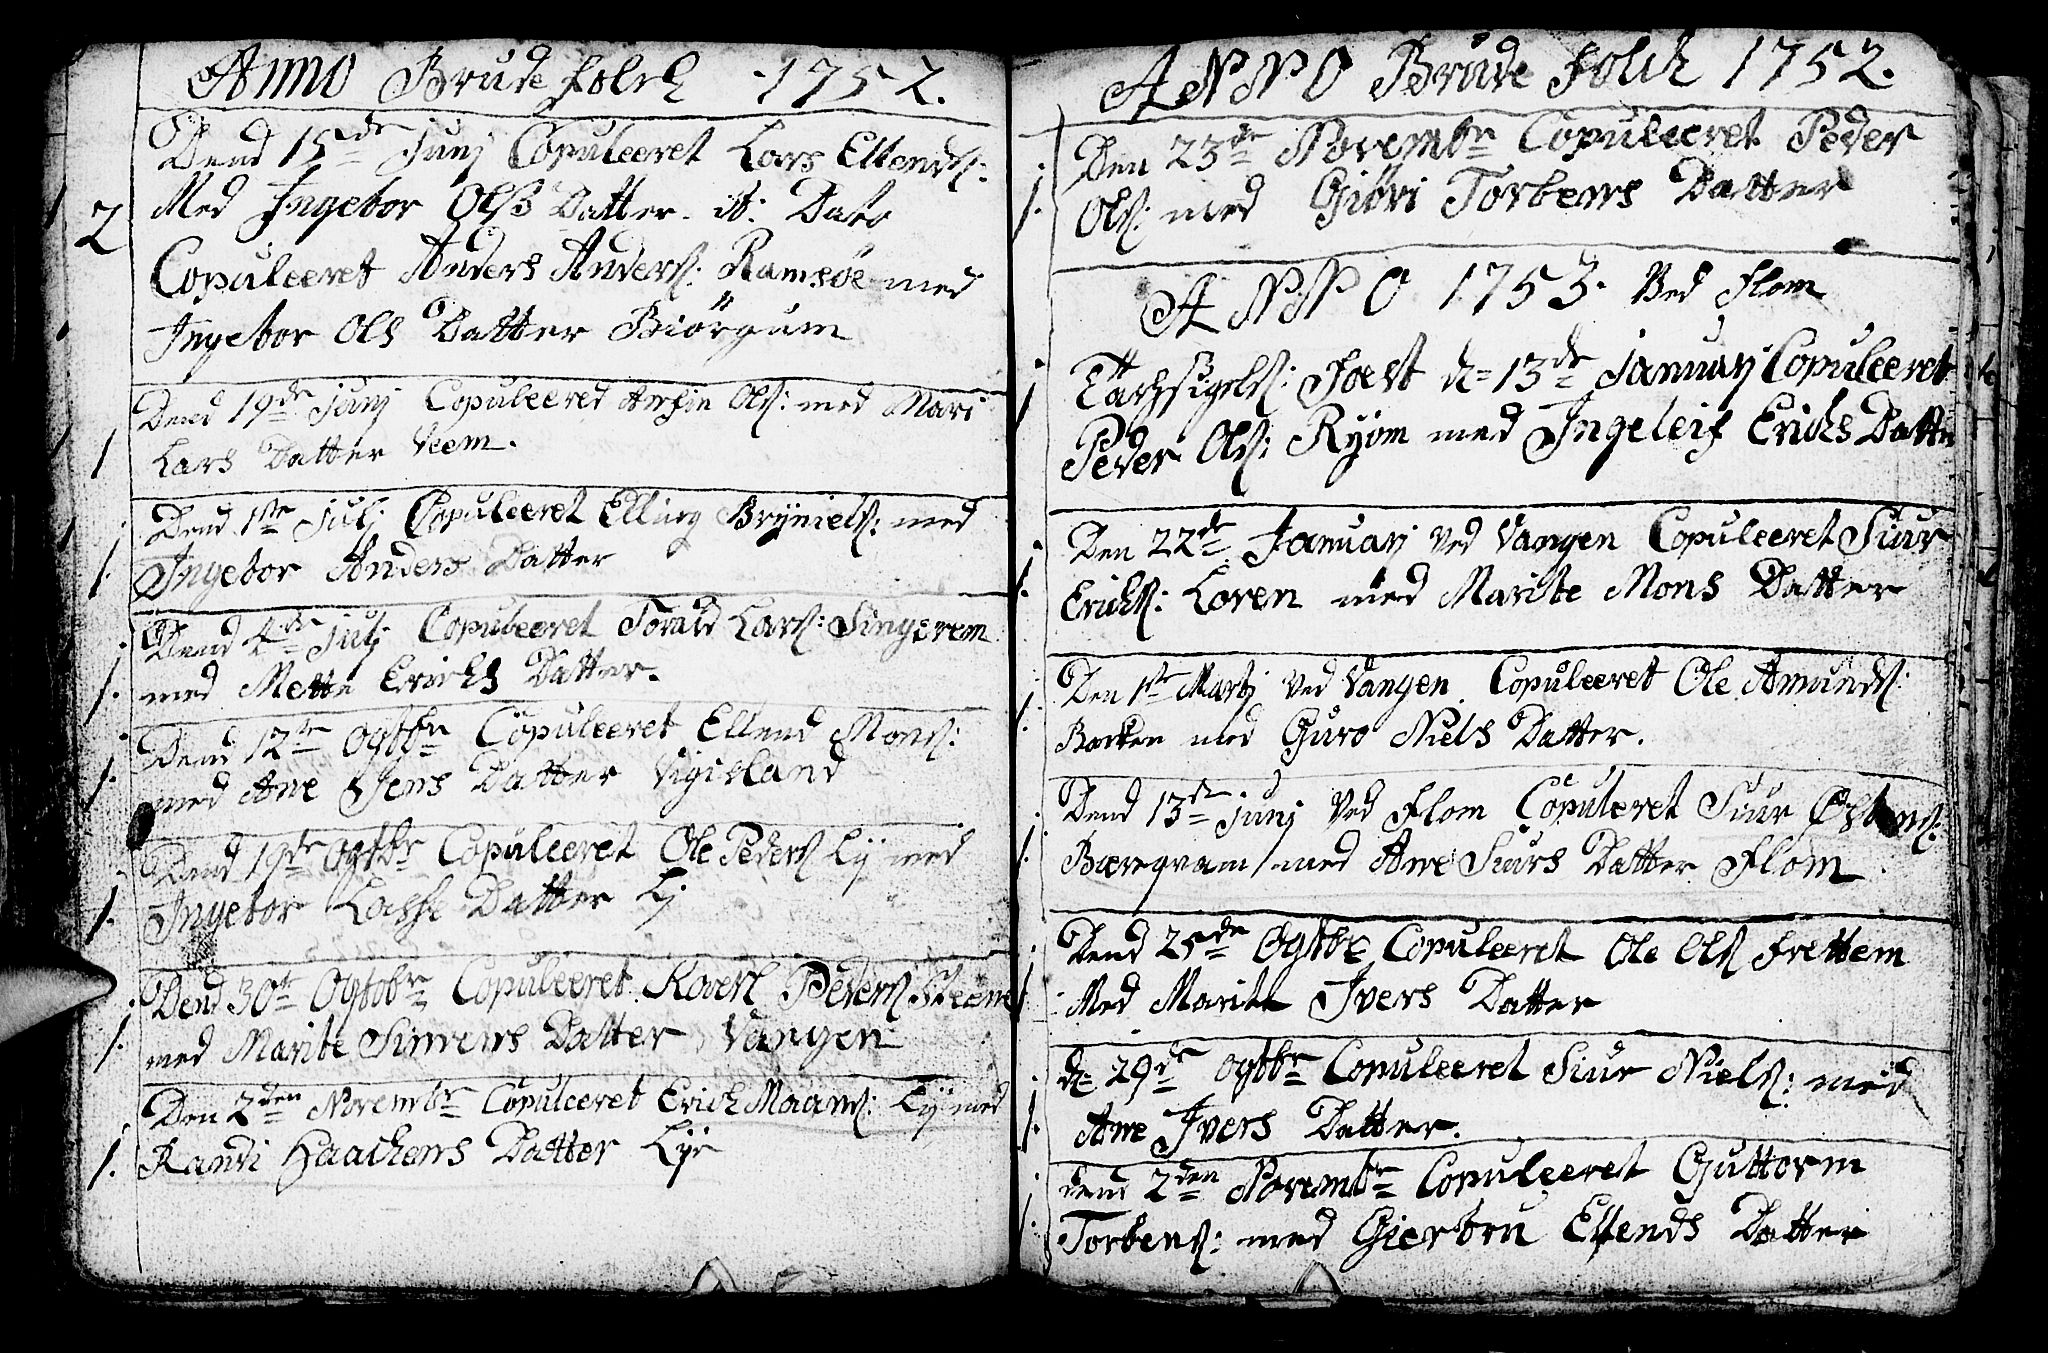 Anno Brude folck 1752.
Dend 15de Junj Copuleeret Lars Ellends:
2 Med Ingebor Olsß Datter. it: Dato
Copuleeret Anders Anders: Ramsøe med
Ingebor Ols Datter Biörgum
Dend 19de Junj Copuleered Anfin Ols: med Mari
1 Lars Datter Veem.
Dend 1ste Julj Copuleeret Elling Brÿniels: med
1. Ingebor Anders Datter
Dend 4de Julj Copuleeret Torald Lars: Singerem
1. med Mette Erichs Datter.
Dend 12te Ogtbr Copuleeret Ellend Mons:
1. med Ane Jens Datter Vigisland
Dend 19de Ogtbr Copuleeret Ole Peders Lÿ med
1. Ingebor Lasse Datter Lÿ
Dend 30te Ogtobr Copuleeret Peders Steene
1. med Marite Simens Datter Vangen
Den 2den Novembr Copuleeret Erich Maans: Lÿ med
1. Randi Haachens Datter Lÿe
ANNO Brude Folck 1752.
Den 23de Novembr Copuleeret Peder
1. Ols: med Giöri Torbens Datter
ANNO 1753. Ved Flom
Tachsigels: Fæst d= 13de Januarj Copuleeret
1 Peder Ols: Ryom med Ingeleif Erichs Datter
Den 22de Januarj Ved Vangen Copuleeret Siur
1. Erichs: Loren med Marite Mons Datter
Den 1ste Martj Ved Vangen Copuleeret Ole Amunds:
1. Backen med Guro Niels Datter.
Dend 13de Junj Ved Flom Copuleret Siur
1. Bæreqvam med Ane Siurs Datter Flom
Dend 25de Ogtbr Copuleeret Ole Ols Frettem
1 Med Marite Ivers Datter
d= 29de Ogtbr Copuleeret Siur Niels: med
1. Ane Ivers Datter.
dend 2den Novembr Copuleeret Guttorm
1. Torbens: med Gierbru Ellends Datter